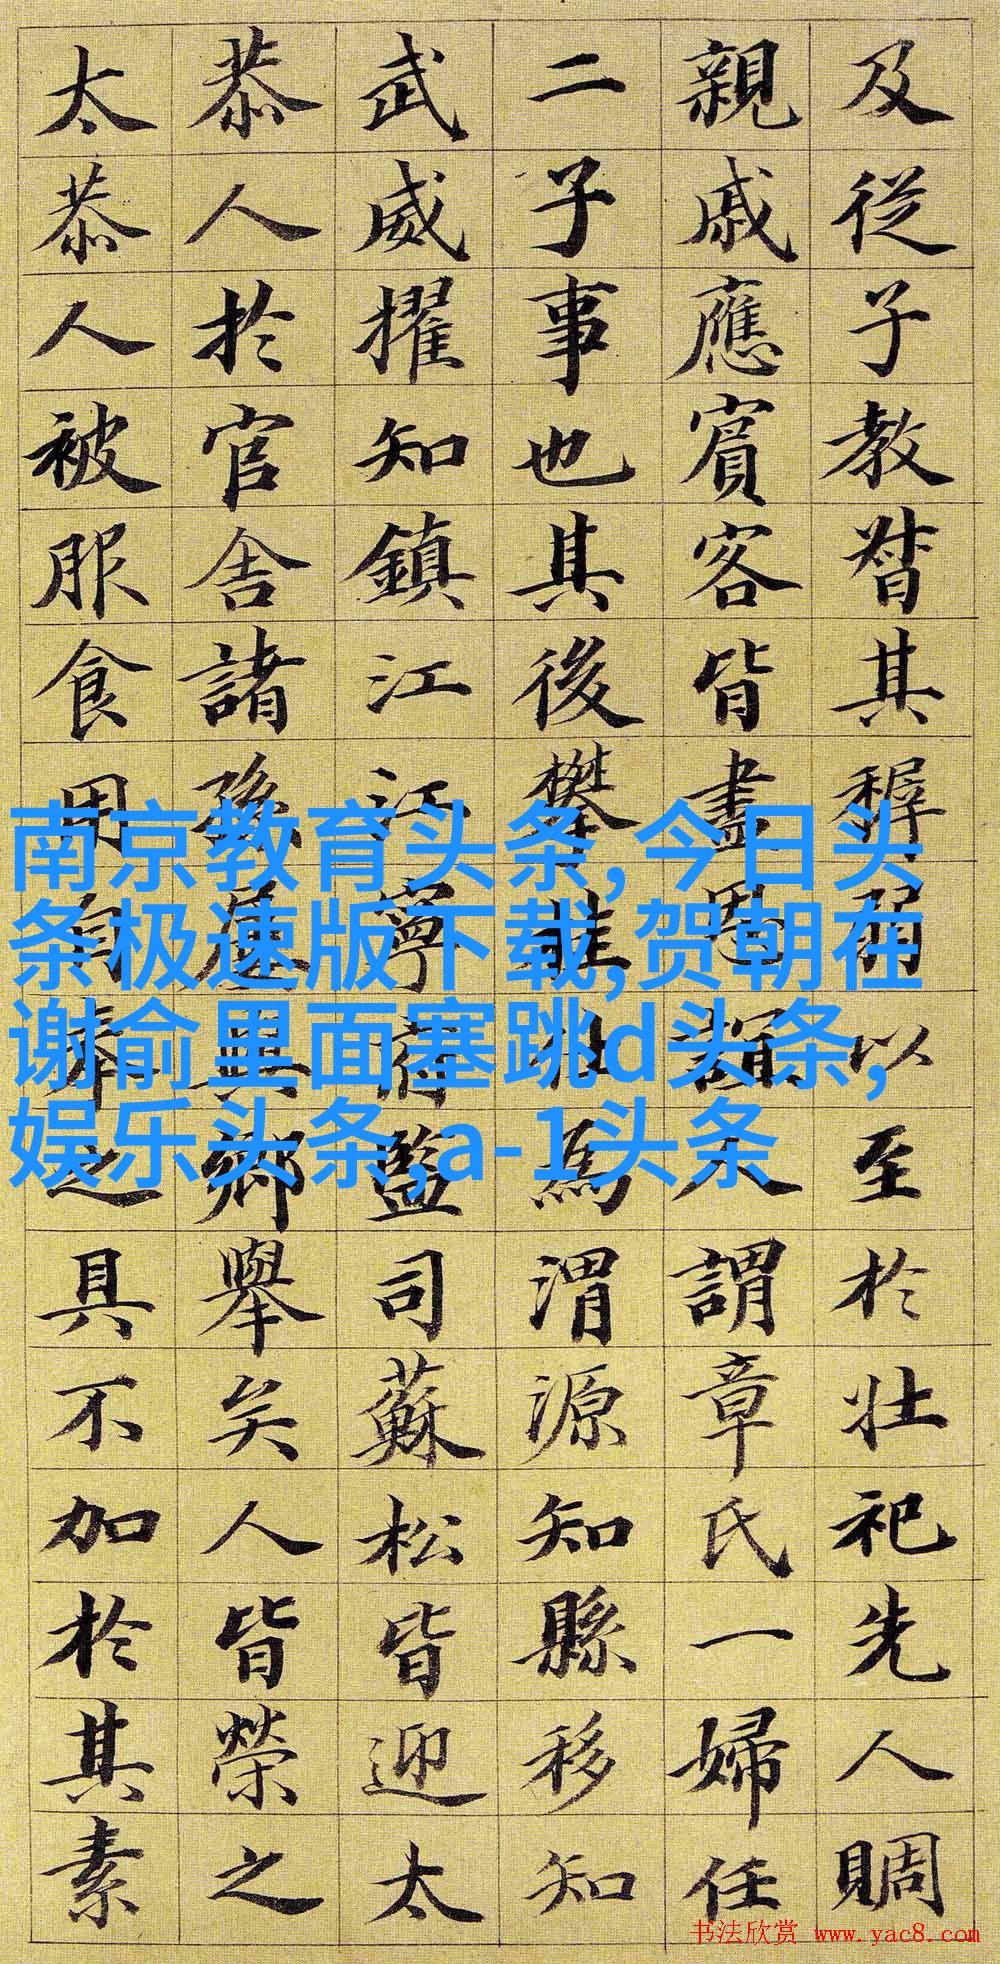 及從子教督其稺弱以至於壯祀先人賙
親戚應賓客皆盡恩誼人謂章氏一婦任
二子事也其後攀桂仕為渭源知縣移知
武威擢知鎮江江寧府監司蘇松皆迎太
恭人於官舍諸孫屢與鄉舉矣人皆榮之
太恭人被服食用自奉之具不加於其素
南京教育头条,今日头
条极速版下载,贺朝在
谢俞里面塞跳d头条,
娱乐头条,a-1头条
书法欣赏 www.yac8.com